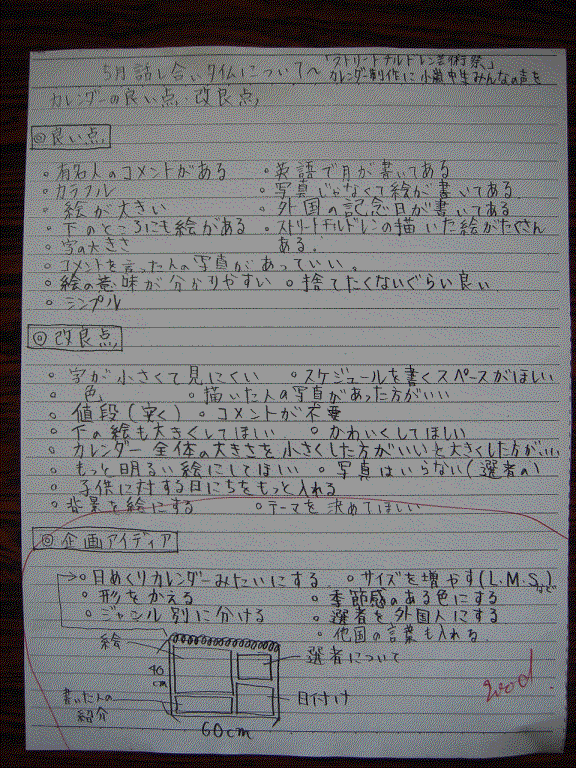 5月話し合いタイムについて〜「ストリートチルドレン芸術祭」
カレンダー制作に小学中生みんなの声を
カレンダーの良い点・改良点
◎良い点
・有名人のコメントがある ・英語で月が書いてある
・カラフル ・写真じゃなくて絵が書いてある
・絵が大きい ・外国の記念日が書いてある
・下のところにも絵がある ・ストリートチルドレンの描いた絵がたくさん
・字の大きさ ある。
・コメントを言った人の写真があっていい。
・絵の意味が分かりやすい ・捨てたくないぐらい良い
・シンプル
◎改良点
・字が小さくて見にくい ・スケジュールを書くスペースがほしい
・色 ・描いた人の写真があった方がいい
・値段(安く) ・コメントが不要
・下の絵も大きくしてほしい ・かわいくしてほしい
・カレンダー全体の大きさを小さくした方がいいと大きくした方がいい
・もっと明るい絵にしてほしい ・写真はいらない(選者の)
・子供に対する日にちをもっと入れる
・背景を絵にする ・テーマを決めてほしい
◎企画アイディア
・日めくりカレンダーみたいにする ・サイズを増やす(L.M.S)など
・形をかえる ・季節感のある色にする
・ジャンル別に分ける ・選者を外国人にする
・他国の言葉も入れる
絵
選者について
40cm
書いた人の紹介
日付け
60cm
good!